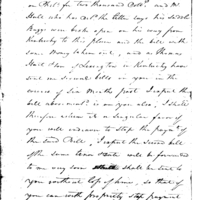 on Phil. for two thousand Doll.s and Mr
Hale who has the letter says his saddle
Baggs were both open on his way from
Kimberly to this place and the bill with
some Money taken out, and as Thomas
Hall &son of Lexington in Kentucky have
sent on several bills on you in the
course of this Month past I expect the
bill above is on you also, I shall
therefore esteem it a singular favor if
you will endeavor to stop the paym.t of
the said Bill, I expect the second bill
of the same will be forwarded
to me very soon shall be sent to
you without loss of time, so that if
you can with propriety stop payment